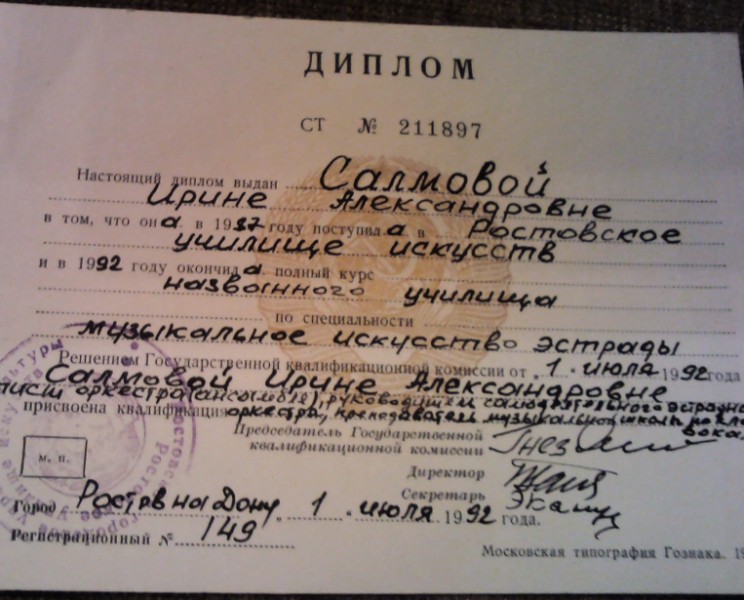 ДИПЛОМ
СТ № 211897
Настоящий диплом выдан Салмовой
Ирине Александровне
в том, что она в 1987 году поступила в Ростовское
училище искусств
и в 1992 году окончила полный курс
названного училища
по специальности
музыкальное искусство эстрады
Решением Государственной квалификационной комиссии от 1 июля 1992 года
Салмовой Ирине Александровне
оркестра (ансамбля), руководитель самодеятельного
присвоена квалификация оркестра, преподаватель музыкальной школы по
Председатель Государственной
квалификационной комиссии
Директор
Секретарь
м. п.
Город Ростов на Дону 1 июля 1992 года.
Регистрационный № 149
Московская типография Гознака.